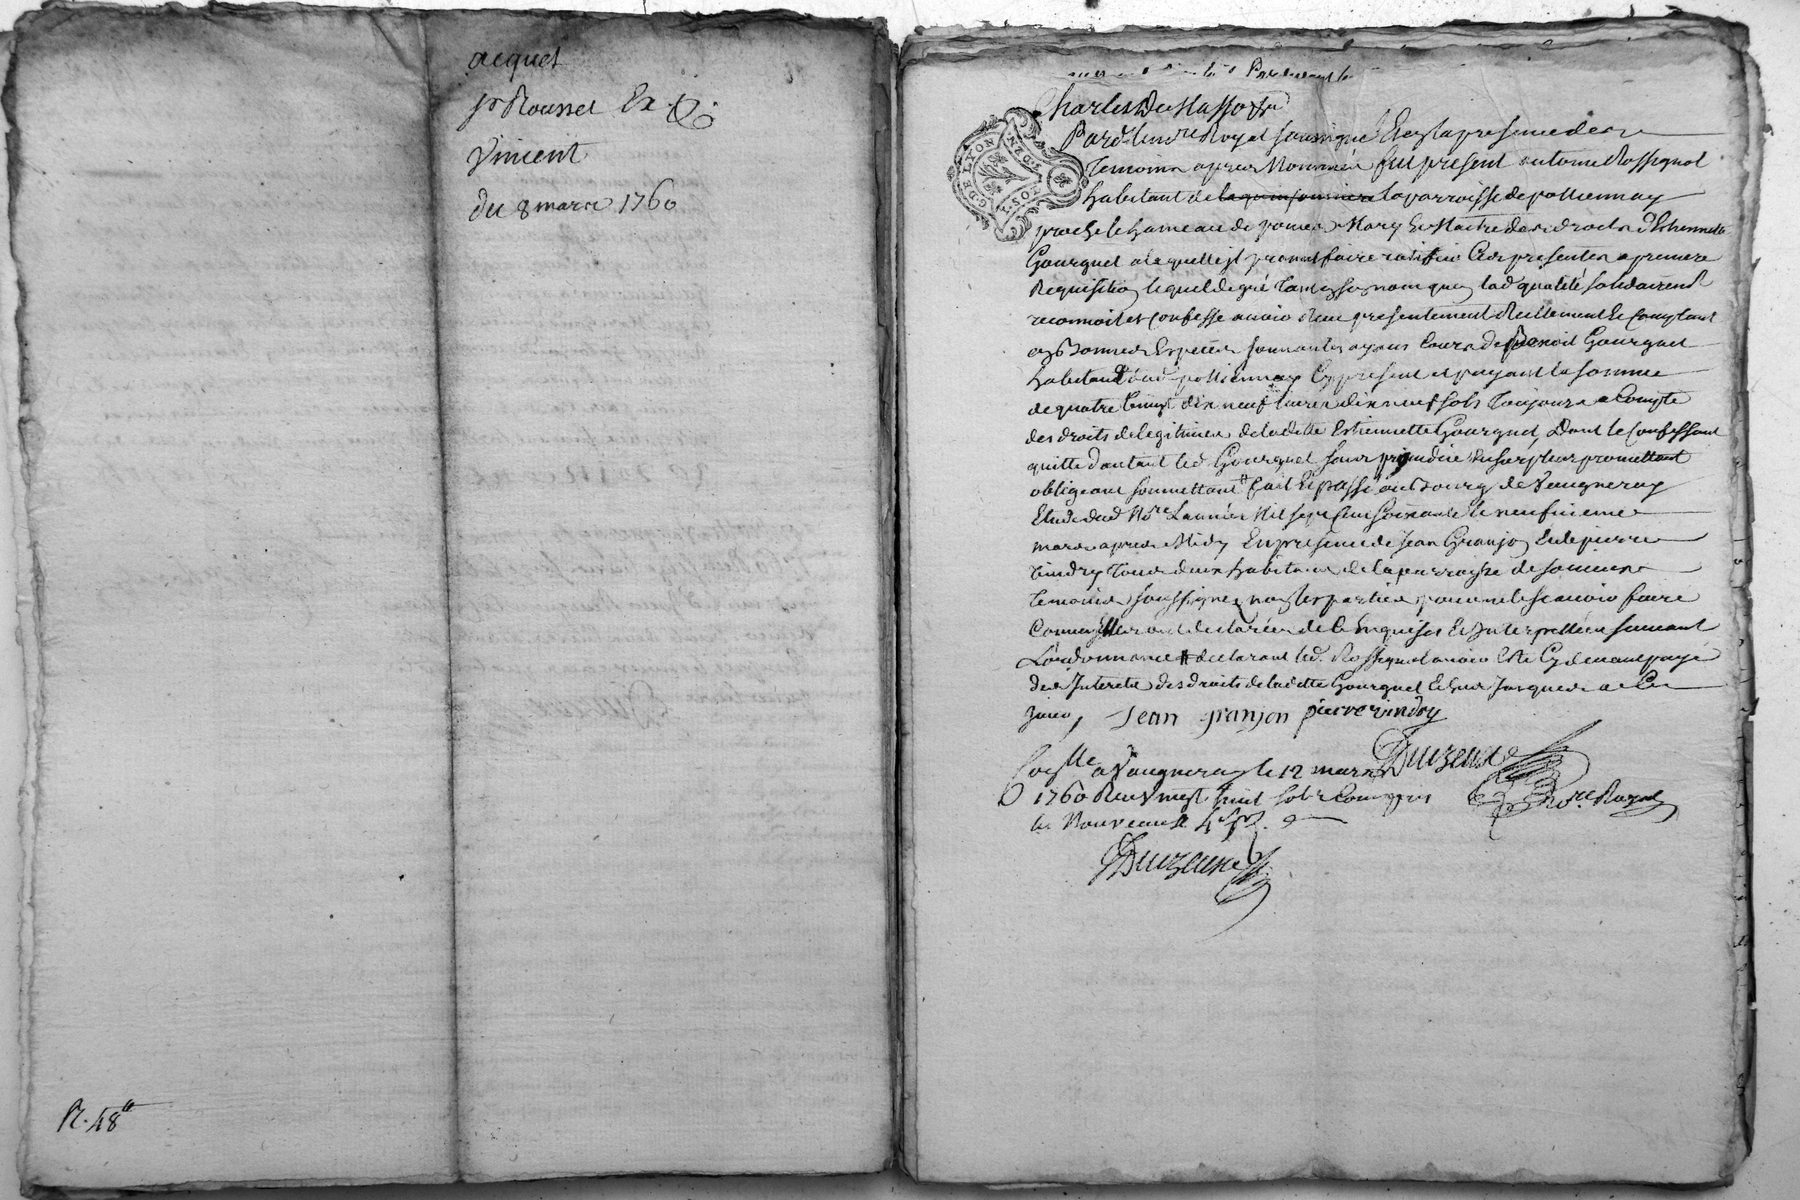 acquet
pr Rousset Ex
Vincent
du 8 mars 1760
R. 48tt
G. DE LYON
Pard. le no.re Royal soussigné Et en la presence des
Temoins apres Nommés fut present antoine Rossignol
habitant de la parroisse de pollionnay
proche le hameau de Mary Et Maitre des droits d'Estiennette
Gourguet a laquelle jl promet faire ratifier Ces presentes a premiere
Requisition lequel de gré tant en son nom qu'en lad. qualité solidairement
reconnoit et Confesse avoir Receu presentement Reellement Et Comptant
en Bonnes Especes sonnantes ayans Cours de Benoit Gourguet
habitant dud. pollionnay Cy present et payant la somme
de quatre vingt dix neuf livres dix neuf sols Toujours a Compte
des droits de legitimes de laditte Estiennette Gourguet, Dont le Confessant
quitte d'autant led. Gourguet sans prejudice du surplus promettant
obligeant soumettant fait Et passé au Bourg de Vaugneray
Etude dud. No.re L'année Mil sept Cent soixante le neufvieme
mars apres Midy En presence de Jean Granjon Et de pierre
Vindry tous deux habitans de la parroisse de
temoins soussignez non les parties pour ne le scavoir faire
Comme Elles ont declarées de Ce Enquises Et Interpellées suivant
L'ordonnance declarant led. Rossignol avoir Esté Cy devant payé
des Interets des droits de laditte Gourguet Echus jusques a Ce
jour, Jean granjon pierre vindry
Coll.é a Vaugneray le 12 mars Duizeux
1760 Receu vingt huit sols Compris no.re Royal
les Nouveaux 4 s. p. l.
Duizeux